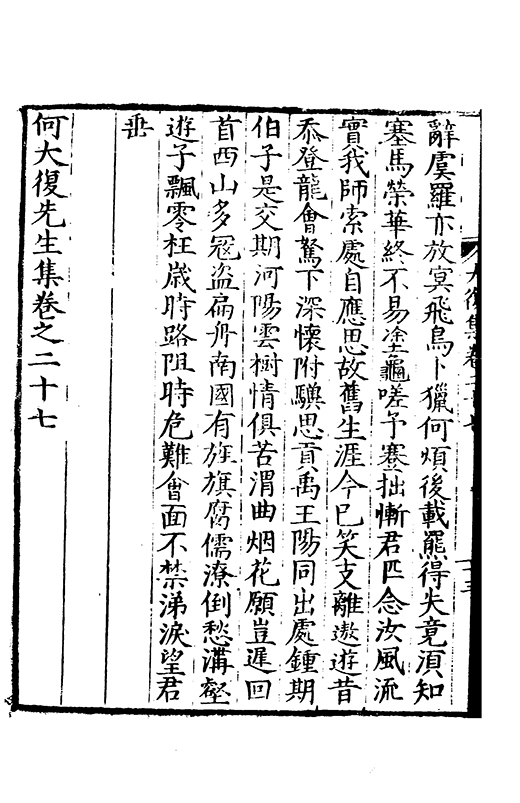 辭虞羅亦放㝠飛鳥卜獵何煩後載羆得失竟湏知
塞馬榮華終不易塗龜嗟予蹇拙慚君匹念汝風流
實我師索處自應思故舊生涯今已笑支離遨遊昔
忝登龍會駑下深懷附驥思貢禹王陽同出處鍾期
伯子是交期河陽雲樹情俱苦渭曲烟花願豈遲回
首西山多冦盗扁舟南國有旌旗腐儒潦倒愁溝壑
遊子飄零枉歳時路阻時危難會面不禁涕淚望君
垂
何大復先生集卷之二十七